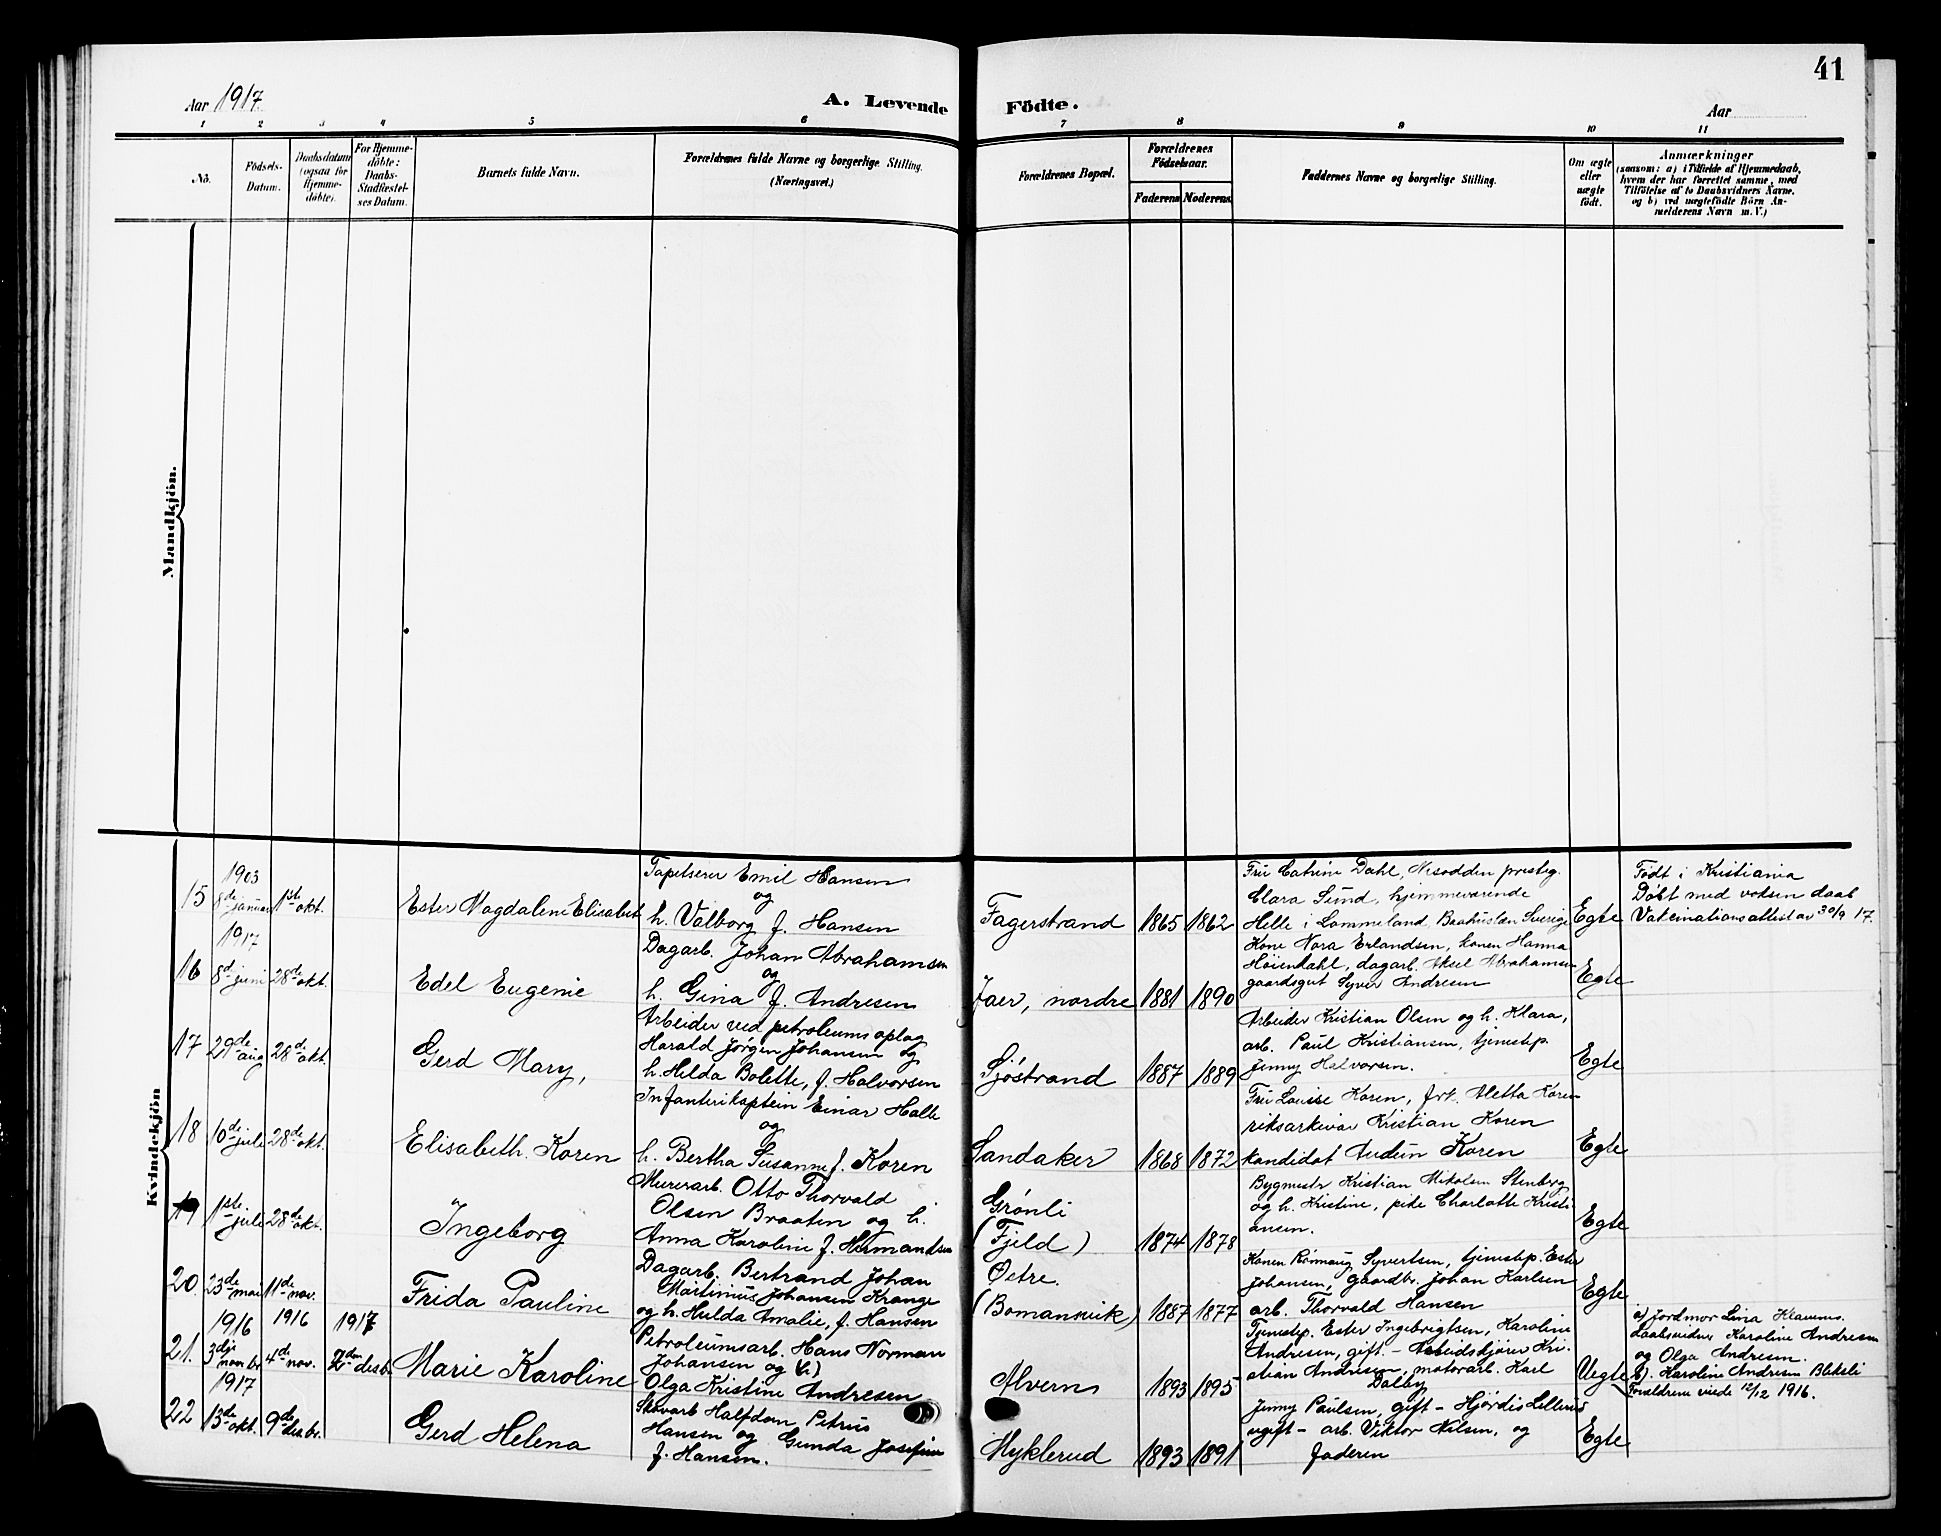 41
Aar 1917.
A. Levende
Födte.
Aar
1 2 3 4 5 6 7 8 9 10 11
No.
Födsels-
Datum.
Daabsdatum
(ogsaa for
Hjemme-
döbte).
For Hjemme-
döbte:
Daabs-
Stadfæstel-
ses Datum.
Barnets fulde Navn.
Forældrenes fulde Navne og borgerlige Stilling.
(Næringsvei.)
Forældrenes Bopæl.
Forældrenes
Födselsaar.
Faderens
Moderens
Faddernes Navne og borgerlige Stilling.
Om ægte
eller
uægte
födt.
Anmærkninger
(saasom: a) i Tilfælde af Hjemmedaab,
hvem der har forrettet samme, med
Tilföielse af to Daabsvidners Navne,
og b) ved uægtefödte Börn An-
melderens Navn m. V.)
Mandkjön.
Kvindekjön
15
1903
8de januar
1ste okt.
Ester Magdalene Elisabet
Tapetserer Emil Hansen
og
h. Valborg f. Hansen
Fagerstrand
1865
1862
Fru Catrine Dahl, Nesodden presteg.
Clara Sund, hjemmeværende
Helle i Lommeland, Baahuslen Sverige
Egte
Födt i Kristiania
Döbt med voksen daab
Vaccinationsattest av 30/9 17.
16
1917
8de juni
28de okt.
Edel Eugenie
Dagarb. Johan Abrahamsen
og
h. Gina f. Andresen
Jaer, nordre
1881
1890
Kone Nora Erlandsen, konen Hanna
Höiendahl, dagarb. Aksel Abrahamsen
gaardsgut Syver Andresen
Egte
17
29de aug
28de okt.
Gerd Mary,
Arbeider ved petroleumsoplag
Harald Jørgen Johansen og
h. Hilda Bolette, f. Halvorsen
Sjöstrand
1887
1889
Arbeider Kristian Olsen og h. Klara,
arb. Paul Kristiansen, tjenestep.
Jenny Halvorsen.
Egte
18
10de juli
28de okt.
Elisabeth. Koren
Infanterikaptein Einar Halle
og
h. Bertha Susanne f. Koren
Sandaker
1868
1872
Fru Louise Koren, frk. Aletta Koren
riksarkivar Kristian Koren
kandidat Audun Koren
Egte
19
1ste juli
28de okt.
Ingeborg
Murerarb. Otto Thorvald
Olsen Braaten og h.
Anna Karoline f. Hermandsen
Grönli
(Fjeld)
1874
1878
Bygmestr Kristian Mikolsen Stenberg
og h. Kristine, pike Charlotte Kristi-
ansen.
Egte
20
23de mai
11de nov.
Frida Pauline
Dagarb. Bertrand Johan
Martinius Johansen Krange
og h. Hulda Amalie, f. Hansen
Oetre.
(Bomansvik)
1887
1877
Konen Rönnaug Syvertsen, tjenestep. Ester
Johansen, gaardbr. Johan Karlsen
arb. Thorvald Hansen
Egte
21.
1916
3dje novbr
1917
1916
4de nov.
1917
2den desbr.
Marie Karoline
Petroleumsarb. Hans Norman
Johansen og (h.)
Olga Kristine Andresen
Alvern
1893
1895
Tjenestep. Ester Ingebrigtsen, Karoline
Andresen, gift. - Arbeidskjörer Kri-
stian Andresen, motorarb. Karl
Dalby
Uegte
a) Jordmor Lina Klemmes.
daabsvidner Karoline Andresen
og Olga Andresen.
b). Karoline Andresen Blekeli
Forældrene viede 12/12 1916.
22
13de okt.
9de desbr.
Gerd Helena
Skovarb Halfdan Petrus
Hansen og Gunda Josefine
f. Hansen.
Myklerud
1893
1891
Jenny Paulsen, gift - Hjördis Lillerud
ugift - arb. Viktor Nilsen, og
faderen
Egte